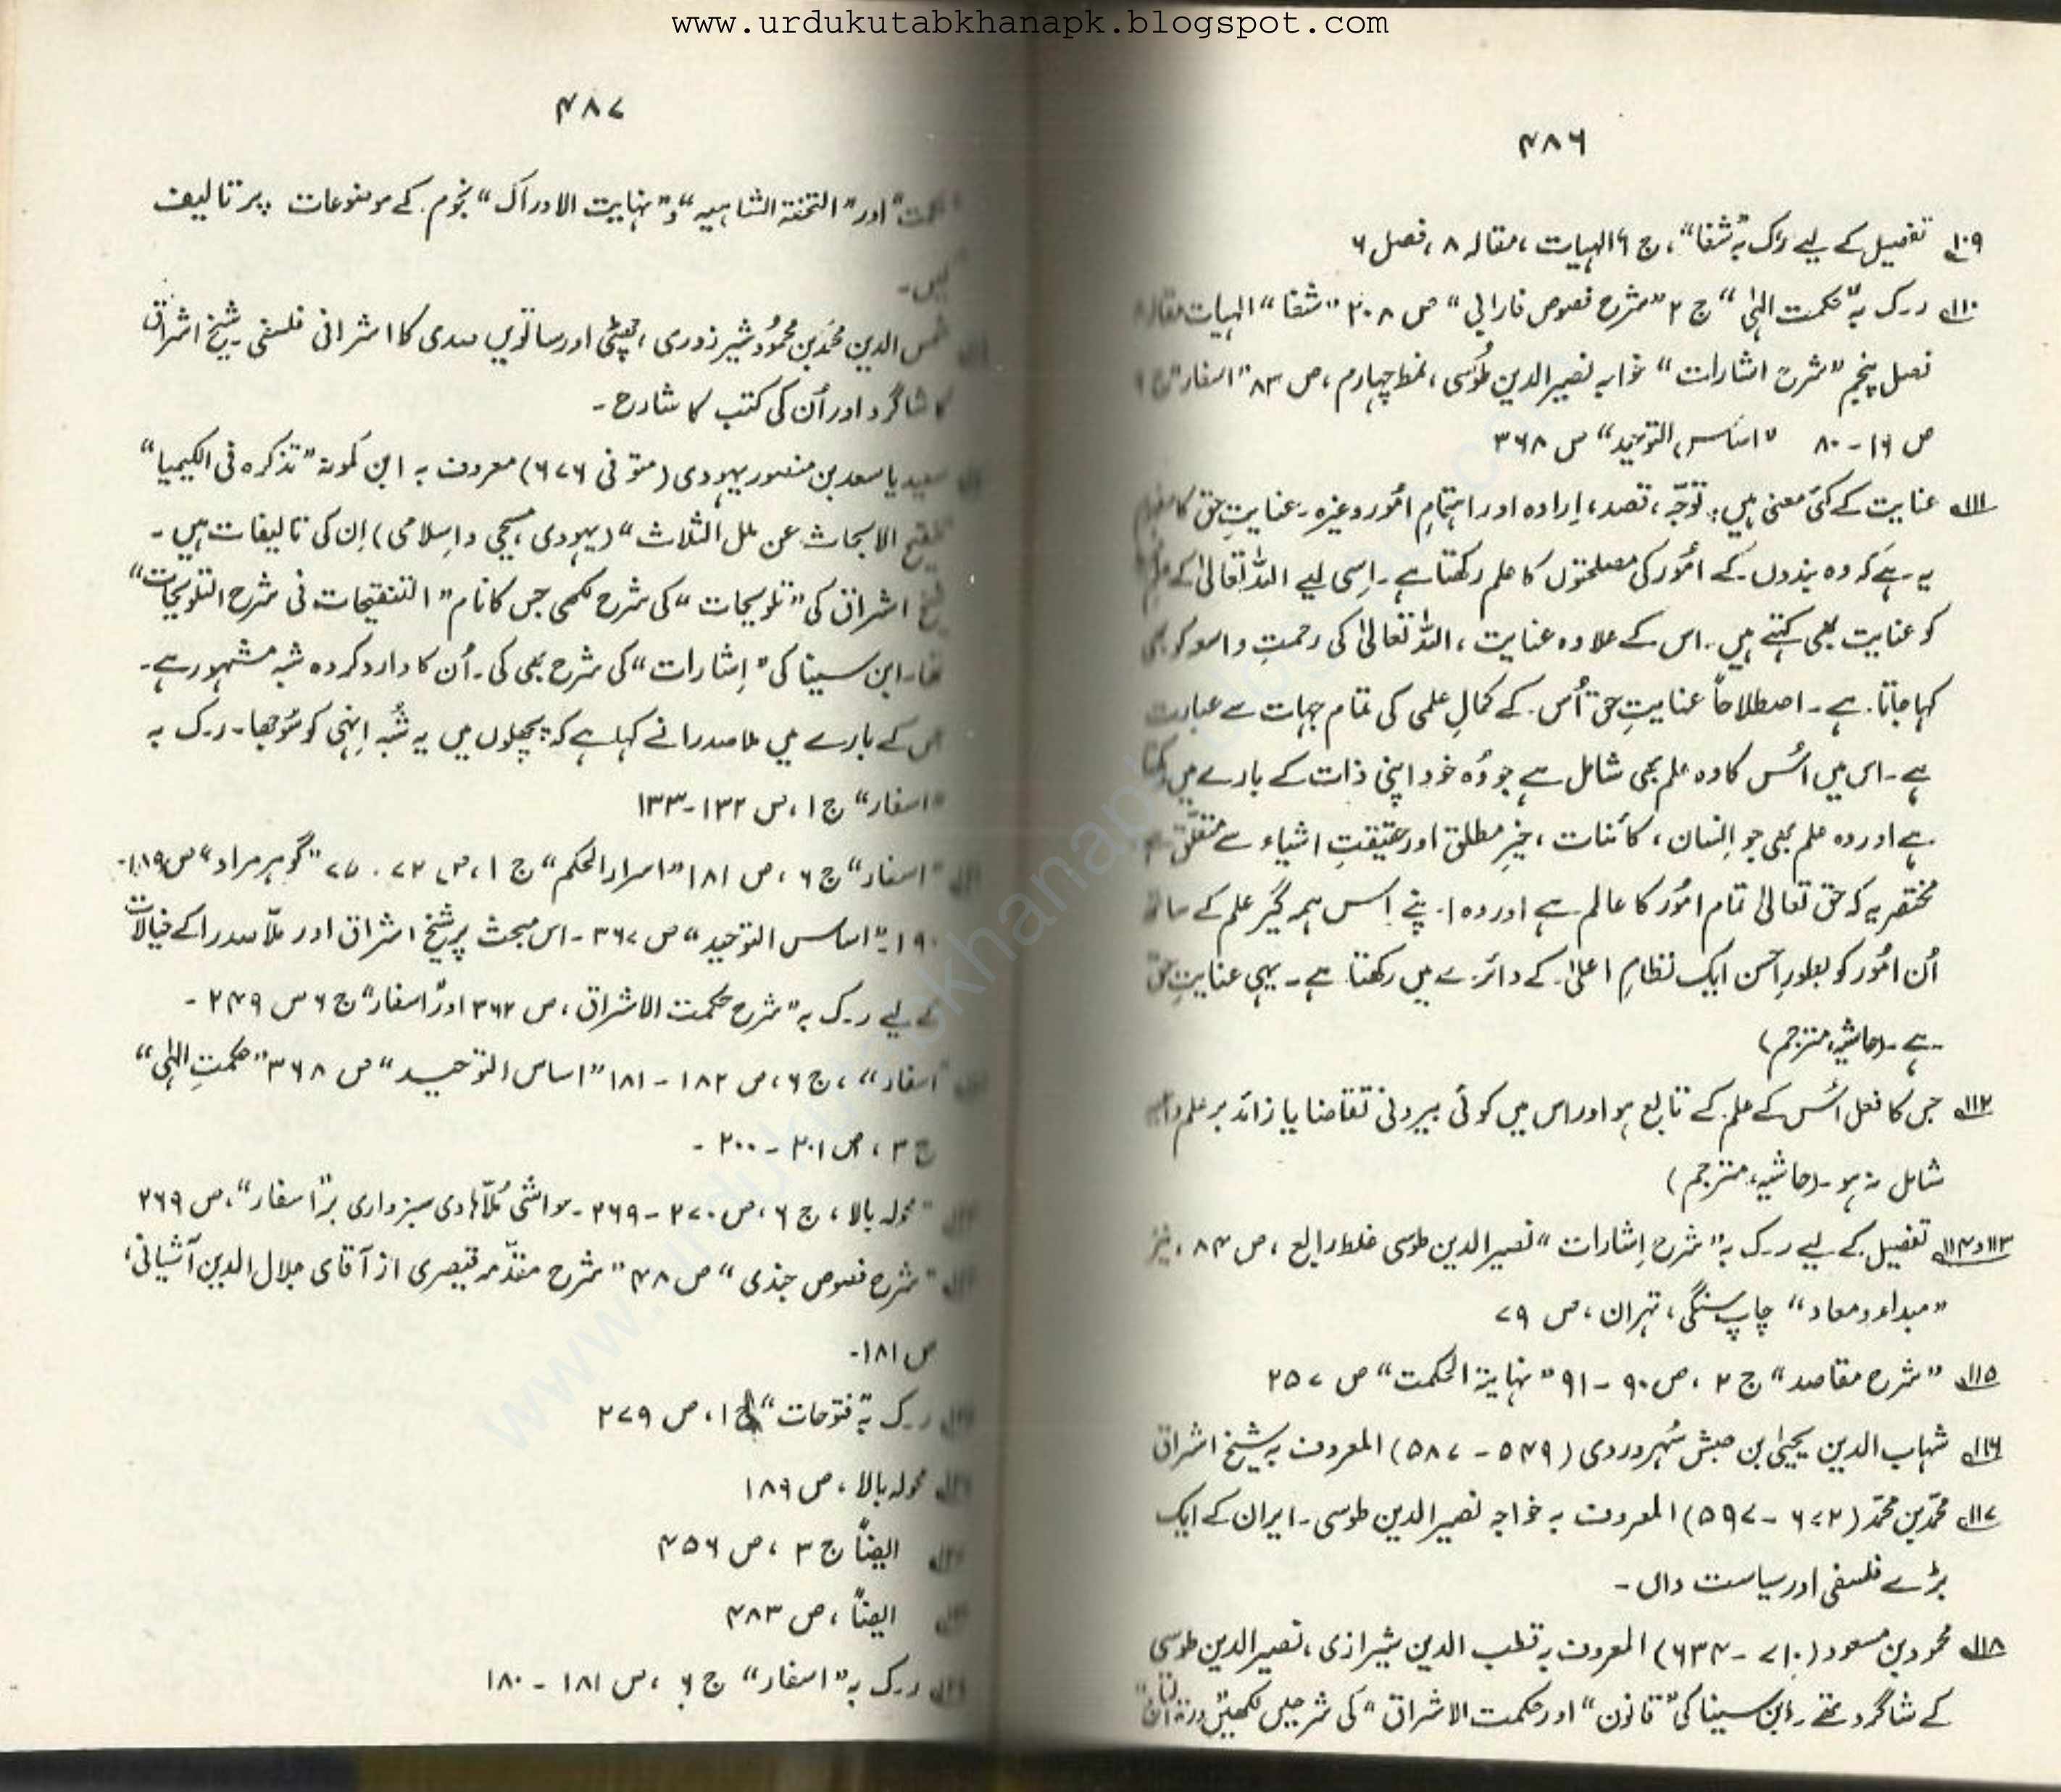 www.urdukutabkhanapk.blogspot.com
۴۸۶
۱۰۹ تفصیل کے لیے ر۔ک بہ "شفا"، ج ۶ الہیات، مقالہ ۸، فصل ۶
۱۱۰ ر۔ک بہ "حکمت الہٰی" ج ۲ "شرح فصوص فارابی" ص ۲۰۸ "شفا" الہیات مقالہ ۸
فصل پنجم "شرح اشارات" خواجہ نصیر الدین طوسی، نمط چہارم، ص ۸۳ "اسفار" ج ۶
ص ۱۶ - ۸۰ "اساس التوحید" ص ۳۶۸
۱۱۱ عنایت کے کئی معنی ہیں: توجّہ، قصد، اِرادہ اور اہتمامِ امُور وغیرہ۔ عنایتِ حق کا مفہوم
یہ ہے کہ وہ بندوں کے امُور کی مصلحتوں کا علم رکھتا ہے۔ اِسی لیے اللہ تعالیٰ کے علم
کو عنایت بھی کہتے ہیں۔ اس کے علاوہ عنایت، اللہ تعالیٰ کی رحمتِ واسعہ کو بھی
کہا جاتا ہے۔ اصطلاحاً عنایتِ حق اُس کے کمالِ علمی کی تمام جہات سے عبارت
ہے۔ اس میں اُس کا وہ علم بھی شامل ہے جو وُہ خود اپنی ذات کے بارے میں رکھتا
ہے اور وہ علم بھی جو اِنسان، کائنات، خیرِ مطلق اور حقیقتِ اشیاء سے متعلّق ہے
مختصر یہ کہ حق تعالیٰ تمام امُور کا عالم ہے اور وہ اپنے اِس ہمہ گیر علم کے ساتھ
اُن امُور کو بطورِ احسن ایک نظامِ اعلیٰ کے دائرے میں رکھتا ہے۔ یہی عنایتِ حق
ہے۔ (حاشیہ، مترجم)
۱۱۲ جس کا فعل اُس کے علم کے تابع ہو اور اس میں کوئی بیرونی تقاضا یا زائد بر علم
شامل نہ ہو۔ (حاشیہ، مترجم)
۱۱۳و۱۱۴ تفصیل کے لیے ر۔ک بہ "شرح اِشارات" نصیر الدین طوسی غلط رابع، ص ۸۴، نیز
"مبداء و معاد" چاپ سنگی، تہران، ص ۷۹
۱۱۵ "شرح مقاصد" ج ۲، ص ۹۰ - ۹۱ "نہایۃ الحکمت" ص ۲۵۷
۱۱۶ شہاب الدین یحییٰ بن حبش سُہروردی (۵۴۹ - ۵۸۷) المعروف بہ شیخ اشراق
۱۱۷ محمّد بن محمّد (۶۷۲ - ۵۹۷) المعروف بہ خواجہ نصیر الدین طوسی۔ ایران کے ایک
بڑے فلسفی اور سیاست داں۔
۱۱۸ محمود بن مسعود (۷۱۰ - ۶۳۴) المعروف بہ قطب الدین شیرازی، نصیر الدین طوسی
کے شاگرد تھے۔ ابن سینا کی "قانون" اور حکمت الاشراق" کی شرحیں لکھیں
۴۸۷
اور "التحفۃ الشاہیہ" و "نہایت الادراک" نجوم کے موضوعات پر تالیف
کیں۔
شمس الدین محمّد بن محمُود شہرزوری، چھٹی اور ساتویں صدی کا اشراقی فلسفی شیخ اشراق
کا شاگرد اور اُن کی کتب کا شارح۔
سعید یا سعد بن منصور یہودی (متوفی ۶۷۶) معروف بہ ابن کمونہ "تذکرہ فی الکیمیا"
تنقیح الابحاث عن ملل الثلاث" (یہودی، مسیحی و اسلامی) اِن کی تالیفات ہیں۔
شیخ اشراق کی "تلویحات" کی شرح لکھی جس کا نام "التنقیحات فی شرح التلویحات"
تھا۔ ابن سینا کی "اِشارات" کی شرح بھی کی۔ اُن کا وارد کردہ شبہ مشہور ہے۔
جس کے بارے میں ملا صدرا نے کہا ہے کہ پچھلوں میں یہ شُبہ اِنہی کو سُوجھا۔ ر۔ک بہ
"اسفار" ج ۱، ص ۱۳۲-۱۳۳
"اسفار" ج ۶، ص ۱۸۱ "اسرار الحکم" ج ۱، ص ۷۳ . ۷۵ "گوہر مراد" ص ۱۸۹۔
۱۹۰ "اساس التوحید" ص ۳۶۷ - اس مبحث پر شیخ اشراق اور ملّا صدرا کے خیالات
کے لیے ر۔ک بہ "شرح حکمت الاشراق، ص ۳۶۲ اور "اسفار" ج ۶ ص ۲۴۹ -
"اسفار"، ج ۶، ص ۱۸۲ - ۱۸۱ "اساس التوحید" ص ۳۶۸ "حکمتِ الہٰی"
ج ۳، ص ۲۰۱ - ۲۰۰ -
"محولہ بالا، ج ۶، ص ۲۷۰ - ۲۶۹ - حواشی مُلّا ہادی سبزواری بر "اسفار"، ص ۲۶۹
"شرح فصوص جندی" ص ۴۸ "شرح مقدّمہ قیصری از آقای جلال الدین آشتیانی،
ص ۱۸۱۔
ر۔ک بہ "فتوحات" ج ۱، ص ۲۷۹
محولہ بالا، ص ۱۸۹
ایضاً ج ۳، ص ۴۵۶
ایضاً، ص ۴۸۳
ر۔ک بہ "اسفار" ج ۶، ص ۱۸۱ - ۱۸۰